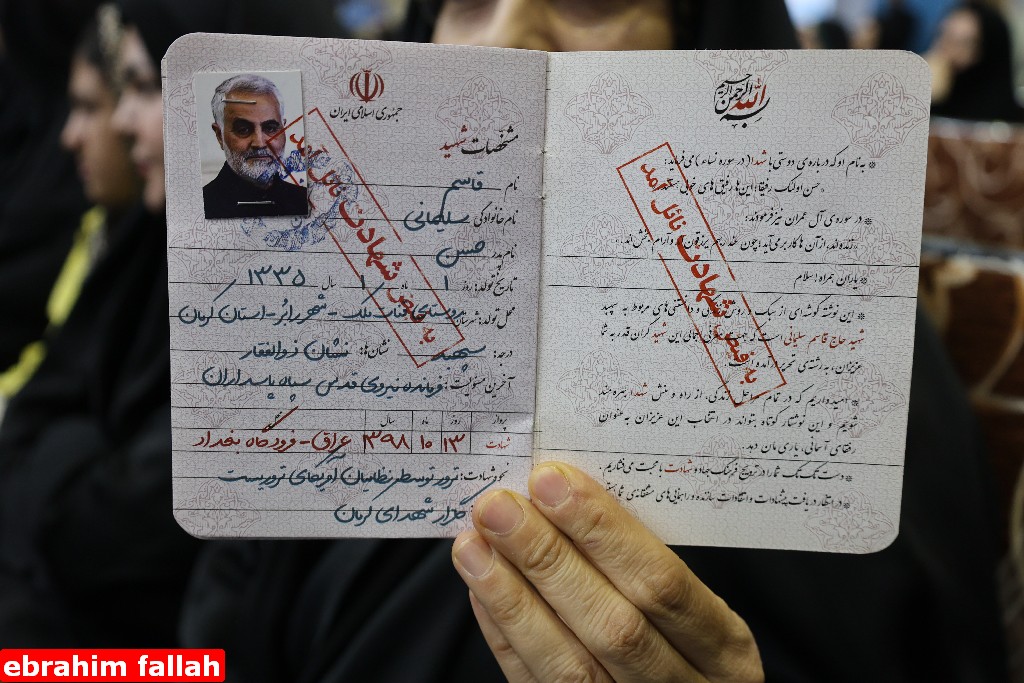 جمهوری اسلامی ایران
مشخصات شهید
نام قاسم
نام خانوادگی سلیمانی
نام پدر: حسن
تاریخ تولد: روز ۱ ماه ۱ سال ۱۳۳۵
محل تولد: شهرستان روستای قنات ملک - شهر رابُر - استان کرمان
درجه: سپهبد نشان‌ها: نشان ذوالفقار
آخرین مسئولیت: فرمانده نیروی قدس سپاه پاسداران
پرواز روز ماه سال
شهادت ۱۳ ۱۰ ۱۳۹۸ عراق - فرودگاه بغداد
نحوه شهادت: ترور توسط نظامیان آمریکای تروریست
گلزار شهدای کرمان
به فیض شهادت نائل آمد
بسم الله الرحمن الرحیم
* به نام او که درباره‌ی دوستی با شهدا (در سوره نساء) می‌فرماید:
حسن اولئک رفیقا؛ این‌ها رفیق‌های خوبی هستند
* در سوره‌ی آل عمران نیز فرمودند:
زنده‌اند، از آن‌ها کار برمی‌آید؛ چون عند ربهم یرزقون‌اند و آرام بخش‌اند.
* یاران همراه! سلام
* این نوشته گوشه‌ای از سبک و روش زندگی و دانستنی‌های مربوط به سپهبد
شهید حاج قاسم سلیمانی است که جهت معرفی اجمالی این شهید گران قدر به شما
عزیزان، به رشته‌ی تحریر درآمده است.
* امیدواریم که در تمام مراحل زندگی، از راه و منش شهدا بهره‌مند
شویم و این نوشتار کوتاه بتواند در انتخاب این عزیزان به عنوان
رفقای آسمانی، یاری مان دهد.
* دست تک تک شما را در ترویج فرهنگ جهاد و شهادت با محبت می‌فشاریم.
* در انتظار دریافت پیشنهادات و انتقادات سازنده و راهنمایی‌های مشفقانه‌ی شما
به فیض شهادت نائل آمد
ebrahim fallah